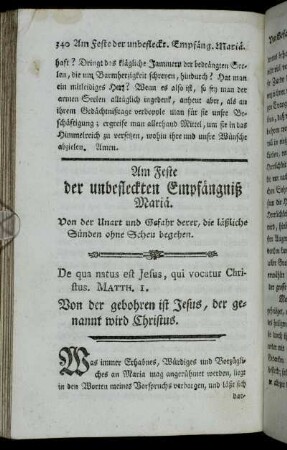 340 Am Feste der unbefleckt. Empfäng. Mariä.
haft? Dringt das klägliche Jammern der bedrängten See-
len, die um Barmherzigkeit schreyen, hindurch? Hat man
ein mitleidiges Herz? Wenn es also ist, so sey man der
armen Seelen alltäglich ingedenk, anheut aber, als an
ihrem Gedächtnißtage verdopple man für sie unsre Be-
schäftigung; ergreife man allerhand Mittel, um sie in das
Himmelreich zu versetzen, wohin ihre und unsre Wünsche
abzielen. Amen.
Am Feste
der unbefleckten Empfängniß
Mariä.
Von der Unart und Gefahr derer, die läßliche
Sünden ohne Scheu begehen.
De qua natus est Jesus, qui vocatur Chri-
stus. MATTH. 1.
Von der gebohren ist Jesus, der ge-
nannt wird Christus.
Was immer Erhabnes, Würdiges und Vorzügli-
ches an Maria mag angerühmet werden, liegt
in den Worten meines Vorspruchs verborgen, und läßt sich